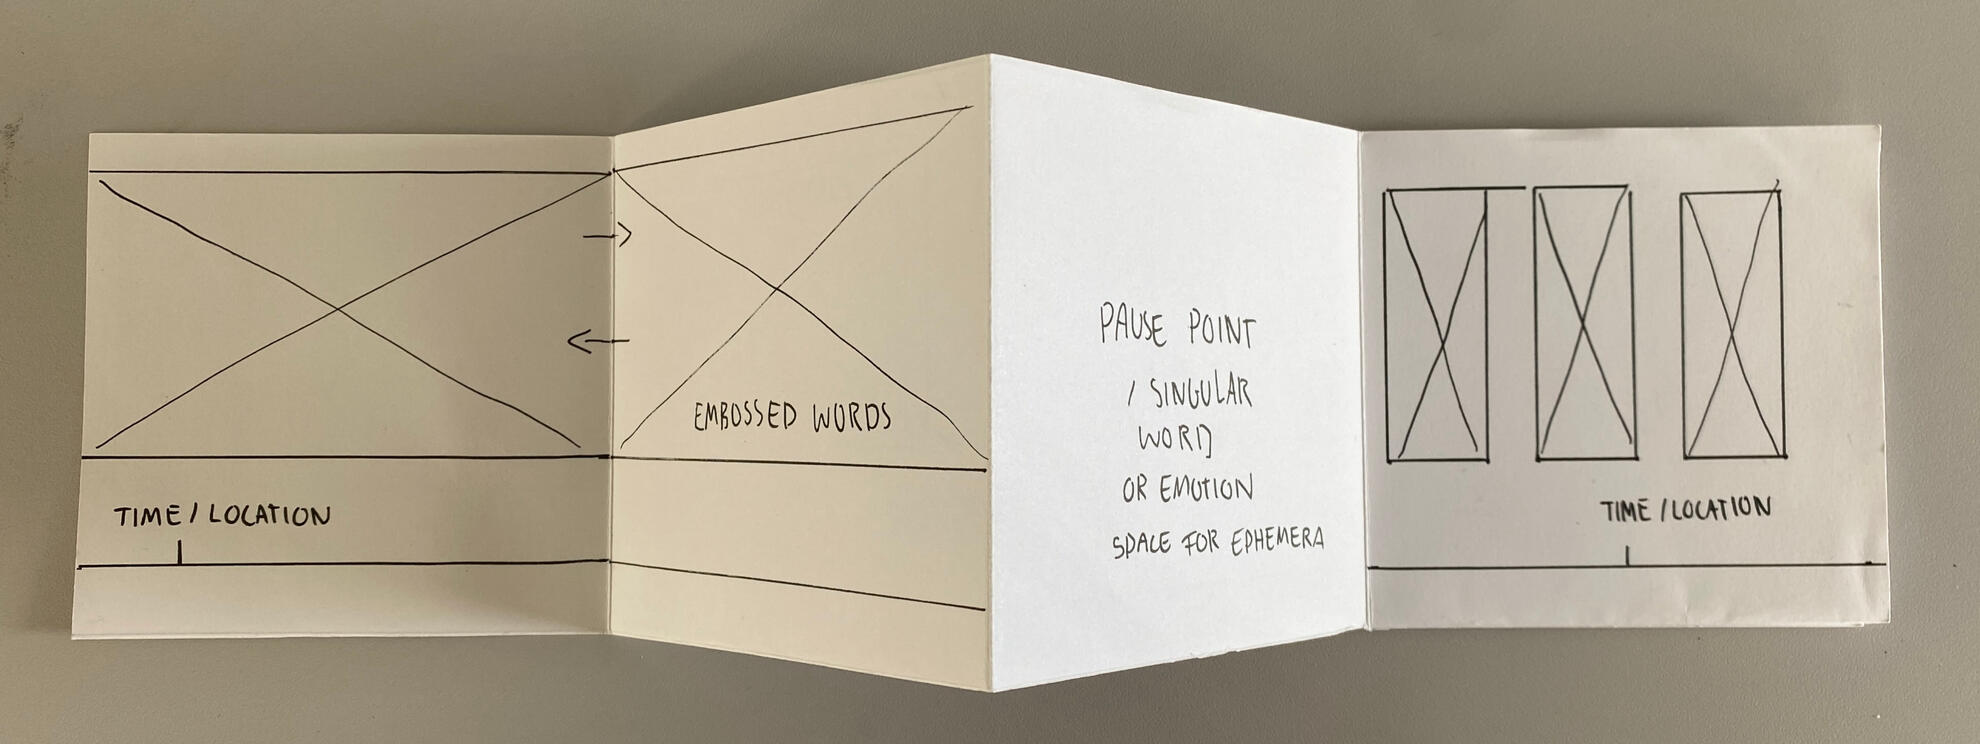 TIME / LOCATION
EMBOSSED WORDS
PAUSE POINT
/ SINGULAR
WORD
OR EMOTION
SPACE FOR EPHEMERA
TIME / LOCATION